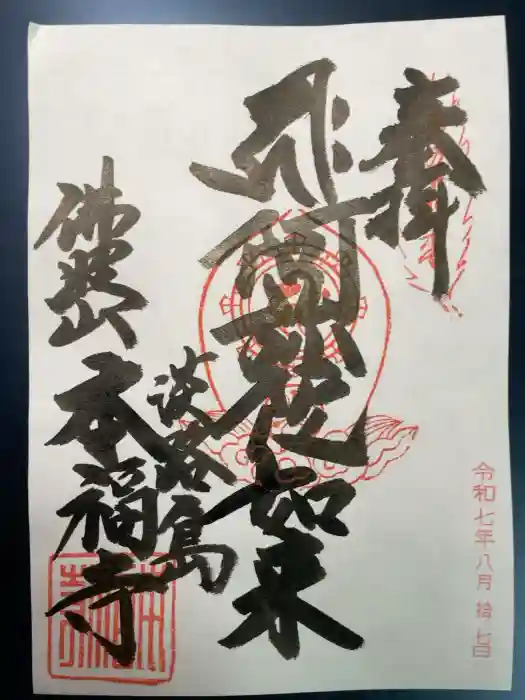 奉拝
阿弥陀如来
淡路島
佛姓山
本福寺
令和七年八月拾七日